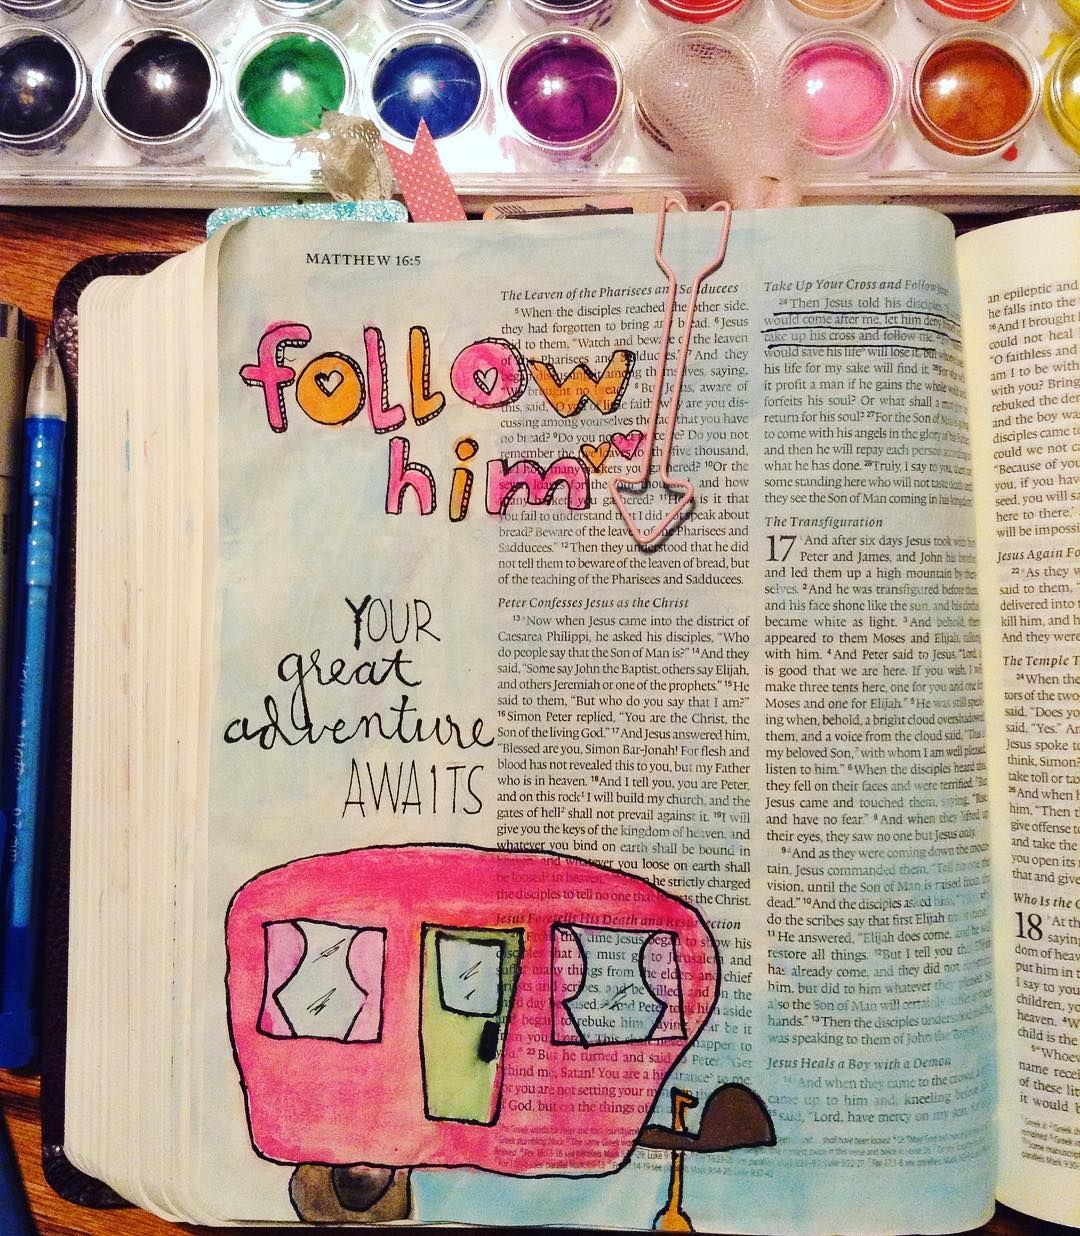 MATTHEW 16:5
follow
him
YOUR
great
adventure
AWAITS
The Leaven of the Pharisees and Sadducees
5 When the disciples reached the other side,
they had forgotten to bring any bread. 6 Jesus
said to them, "Watch and beware of the leaven
of the Pharisees and Sadducees." 7 And they
began discussing it among themselves, saying,
"We brought no bread." 8 But Jesus, aware of
this, said, "O you of little faith, why are you dis-
cussing among yourselves the fact that you have
no bread? 9 Do you not yet perceive? Do you not
remember the five loaves for the five thousand,
and how many baskets you gathered? 10 Or the
seven loaves for the four thousand, and how
many baskets you gathered? 11 How is it that
you fail to understand that I did not speak about
bread? Beware of the leaven of the Pharisees and
Sadducees." 12 Then they understood that he did
not tell them to beware of the leaven of bread, but
of the teaching of the Pharisees and Sadducees.
Peter Confesses Jesus as the Christ
13 Now when Jesus came into the district of
Caesarea Philippi, he asked his disciples, "Who
do people say that the Son of Man is?" 14 And they
said, "Some say John the Baptist, others say Elijah,
and others Jeremiah or one of the prophets." 15 He
said to them, "But who do you say that I am?"
16 Simon Peter replied, "You are the Christ, the
Son of the living God." 17 And Jesus answered him,
"Blessed are you, Simon Bar-Jonah! For flesh and
blood has not revealed this to you, but my Father
who is in heaven. 18 And I tell you, you are Peter,
and on this rock I will build my church, and the
gates of hell shall not prevail against it. 19 I will
give you the keys of the kingdom of heaven, and
whatever you bind on earth shall be bound in
heaven, and whatever you loose on earth shall
be loosed in heaven." he strictly charged
the disciples to tell no one that he was the Christ.
Jesus Foretells His Death and Resurrection
From that time Jesus began to show his
disciples that he must go to Jerusalem and
suffer many things from the elders and chief
priests and scribes, and be killed, and on the
third day be raised. And Peter took him aside
and began to rebuke him, saying, "Far be it
from you, Lord! This shall never happen to
you." 23 But he turned and said to Peter, "Get
behind me, Satan! You are a hindrance to me.
For you are not setting your mind
God, but on the things of
Take Up Your Cross and Follow Jesus
24 Then Jesus told his disciples,
would come after me, let him deny
take up his cross and follow me.
would save his life will lose it, but whoever
his life for my sake will find it. 26 For what
it profit a man if he gains the whole world
forfeits his soul? Or what shall a man
return for his soul? 27 For the Son of Man
to come with his angels in the glory of his
and then he will repay each person according
what he has done. 28 Truly, I say to you,
some standing here who will not taste death
they see the Son of Man coming in his kingdom
The Transfiguration
17 And after six days Jesus took with him
Peter and James, and John his brother
and led them up a high mountain by them-
selves. 2 And he was transfigured before them,
and his face shone like the sun, and his clothes
became white as light. 3 And behold, there
appeared to them Moses and Elijah, talking
with him. 4 And Peter said to Jesus, "Lord, it
is good that we are here. If you wish, I will
make three tents here, one for you and one for
Moses and one for Elijah." 5 He was still speak-
ing when, behold, a bright cloud overshadowed
them, and a voice from the cloud said, "This is
my beloved Son, with whom I am well pleased;
listen to him." 6 When the disciples heard this,
they fell on their faces and were terrified. 7 But
Jesus came and touched them, saying, "Rise,
and have no fear." 8 And when they lifted up
their eyes, they saw no one but Jesus only.
9 And as they were coming down the moun-
tain, Jesus commanded them, "Tell no one the
vision, until the Son of Man is raised from the
dead." 10 And the disciples asked him,
do the scribes say that first Elijah
11 He answered, "Elijah does come, and he will
restore all things. 12 But I tell you that
has already come, and they did not
him, but did to him whatever they pleased. So
also the Son of Man will certainly suffer at their
hands." 13 Then the disciples understood that
was speaking to them of John the Baptist.
Jesus Heals a Boy with a Demon
And when they came to the crowd, a
came up to him and, kneeling
said, "Lord, have mercy on my son, for
an epileptic and
he falls into the
16 And I brought
could not heal
"O faithless and
am I to be with
with you? Bring
rebuked the demon
and the boy was
disciples came to
could we not ca
"Because of you
you, if you have
seed, you will sa
here to there,'
will be imposs
Jesus Again Fo
22 As they w
said to them, "
delivered into t
kill him, and h
And they were
The Temple T
24 When the
tors of the two
said, "Does yo
said, "Yes." An
Jesus spoke to
think, Simon?
take toll or tax
26 And when h
him, "Then t
give offense to
and take the
you open its
that and give
Who Is the G
18 At th
saying
dom of heav
put him in t
I say to you
children, yo
heaven. 4 W
child is the
5 "Whoev
name recei
of these litt
it would b
0.7 mm